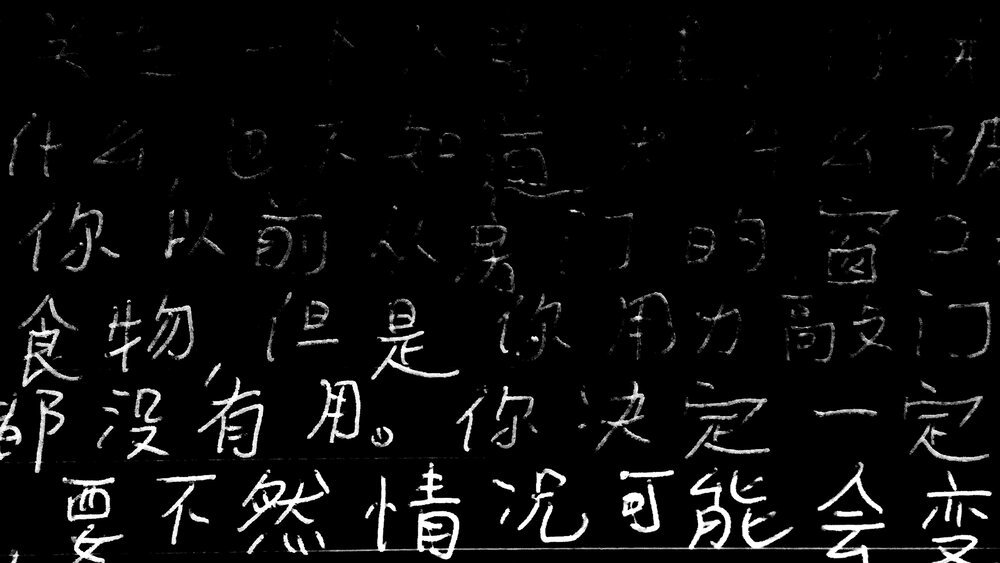 一个
什么,也不知道为什么
你以前从男门的窗口
食物,但是你用力敲门
都没有用。你决定一定
要不然情况可能会变